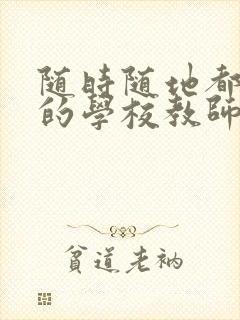 随時随地都
的學校教師
貧道老衲